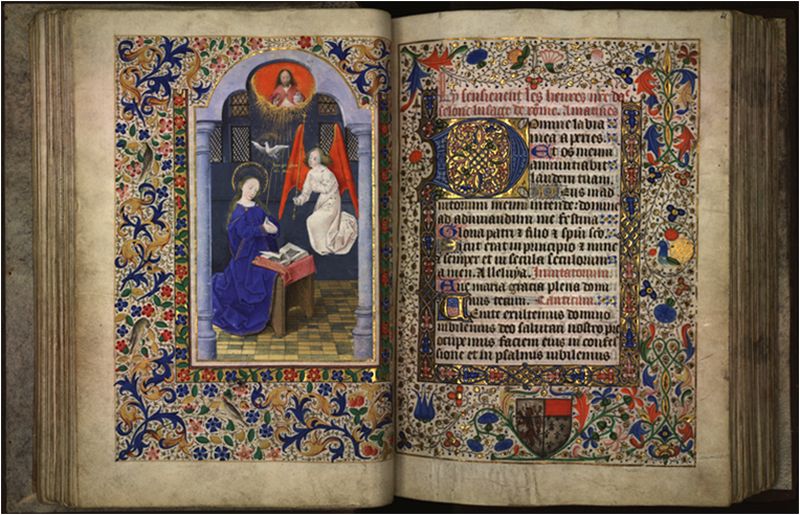 Cy sensieuent les heures nre da
selonc lusaige de rōme. A matines
Domine labia
mea aperies.
Et os meum
annuntiabit
laudem tuam.
Deus in ad
iutorium meum intende domine
ad adiuuandum me festina
Gloria patri & filio & spiui sco.
Sicut erat in principio & nunc
& semper et in secula seculorum
amen. Alleluya. Inuitatorium
Aue maria gracia plena domi
nus tecum. Canticum.
Uenite exultemus domino
iubilemus deo salutari nostro pre
occupemus faciem eius in confes
sione et in psalmis iubilemus